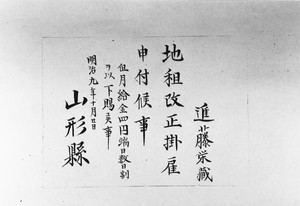 進藤栄蔵
地租改正掛雇
申付候事
但月給金四円端日数日割
ヲ以下賜候事
明治九年十月廿日
山形縣